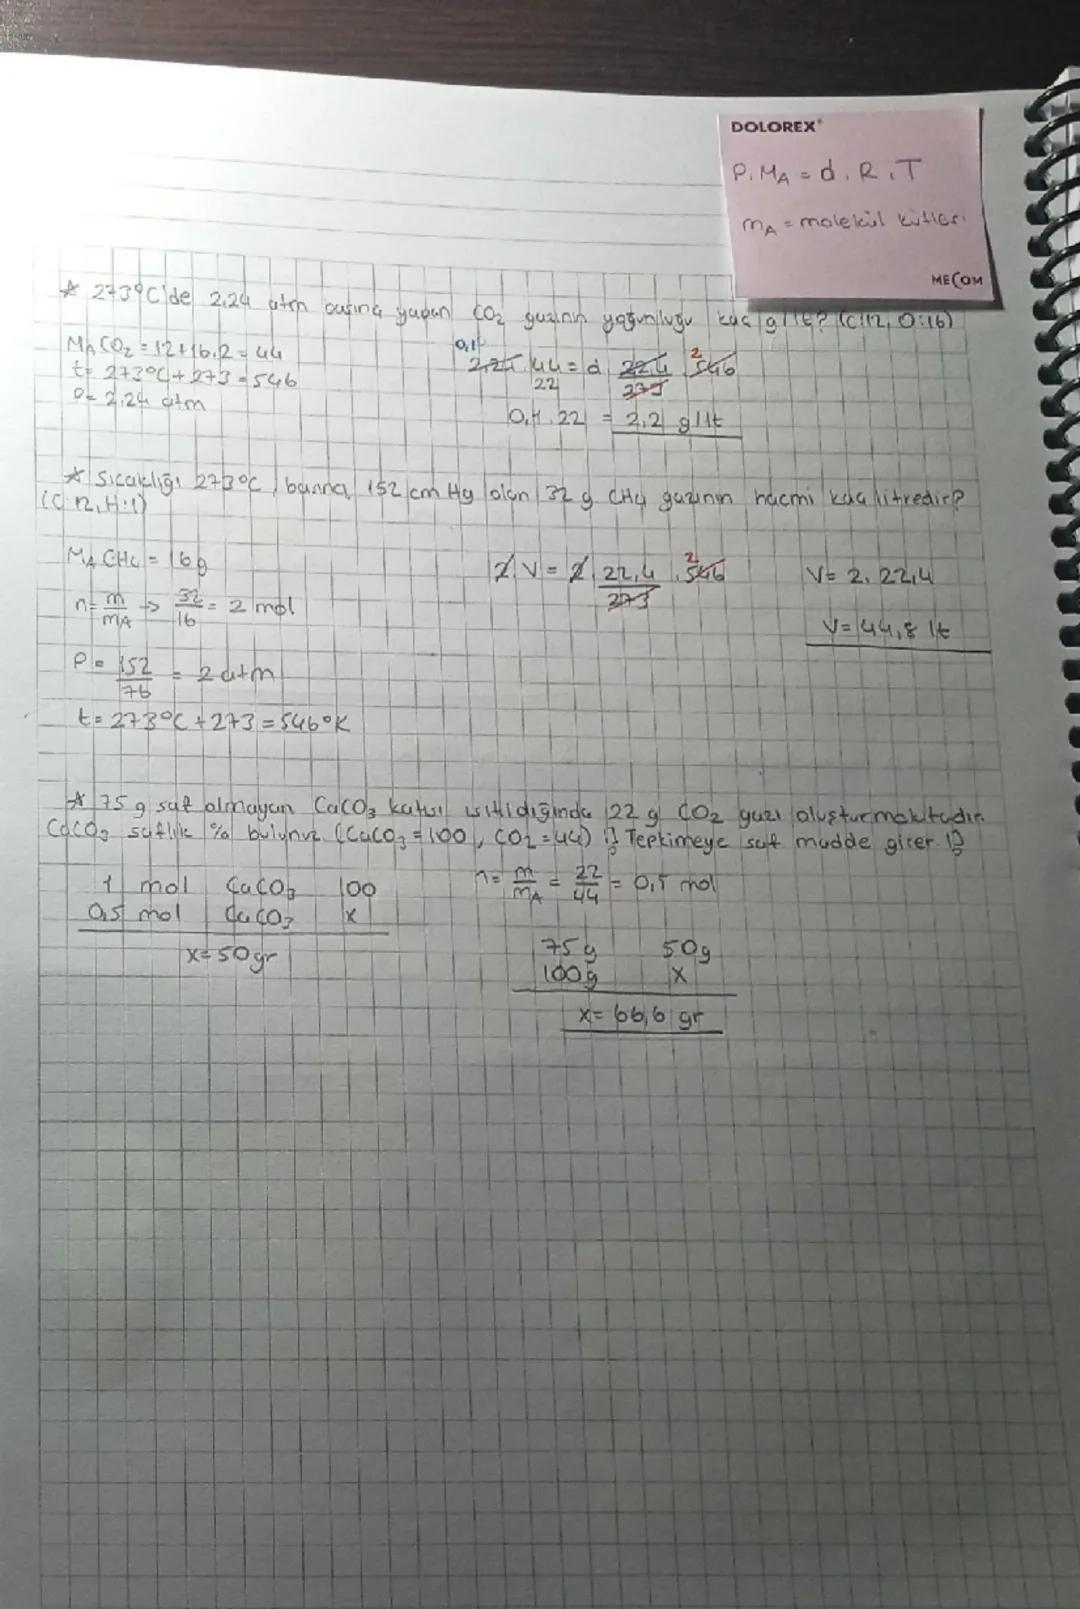 DOLOREX
P. MA = d. R. T
mA = molekül kütlesi
MECOM
* 273°C'de 2,24 atm basınç yapan CO2 gazının yoğunluğu kaç g/lt? (C:12, O:16)
MA CO2 = 12+16.2 = 44
t= 273°C+273=546
P= 2,24 atm
0,1 2
2,24 . 44 = d . 22,4 . 546
22 273
0,1.22 = 2,2 g/lt
* Sıcaklığı 273°C, basıncı 152 cm Hg olan 32 g CH4 gazının hacmi kaç litredir?
(C:12, H:1)
MA CH4 = 16g
n= m/mA → 32/16 = 2 mol
P = 152/76 = 2 atm
t= 273°C+273=546°K
2.V = 2. 22,4/273 . 546 2
V= 2. 22,4
V= 44,8 lt
* 75 g saf olmayan CaCO3 katısı ısıtıldığında 22 g CO2 gazı oluşturmaktadır.
CaCO3 saflık % bulunuz (CaCO3=100, CO2=44) !} Tepkimeye saf madde girer !}
1 mol CaCO3 100
0,5 mol CaCO3 x
x= 50gr
n= m/mA = 22/44 = 0,5 mol
75g 50g
100g x
x= 66,6 gr